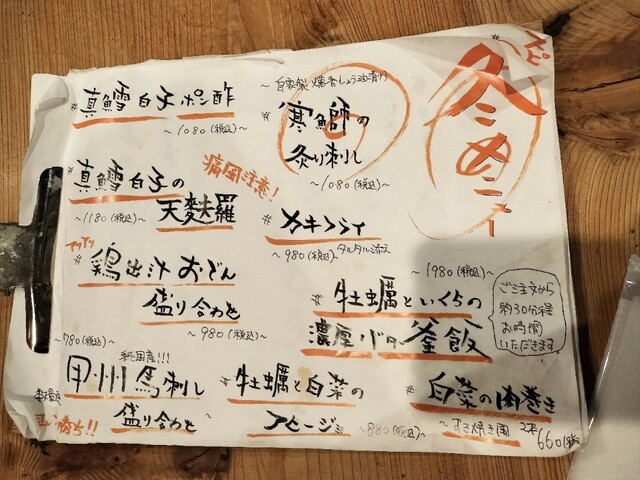 冬のメニュー
#真鱈白子ポン酢
~1080(税込)~
~自家製 燻香しょう油漬け
#寒鰤の
炙り刺し
~1080(税込)~
#真鱈白子の
天麩羅
~1180(税込)~
痛風注意!
#カキフライ
~980(税込)~
タルタル添え
アツアツ
#鶏出汁おでん
盛り合わせ
~980(税込)~
~1980(税込)~
#牡蠣といくらの
濃厚バター釜飯
ご注文から
約30分程
お時間
いただきます
~780(税込)~
純国産!!!
甲州馬刺し
盛り合わせ
勝ち!!
#牡蠣と白菜の
アヒージョ
~880(税込)~
#白菜の肉巻き
~すき焼き風~
2本
660(税込)